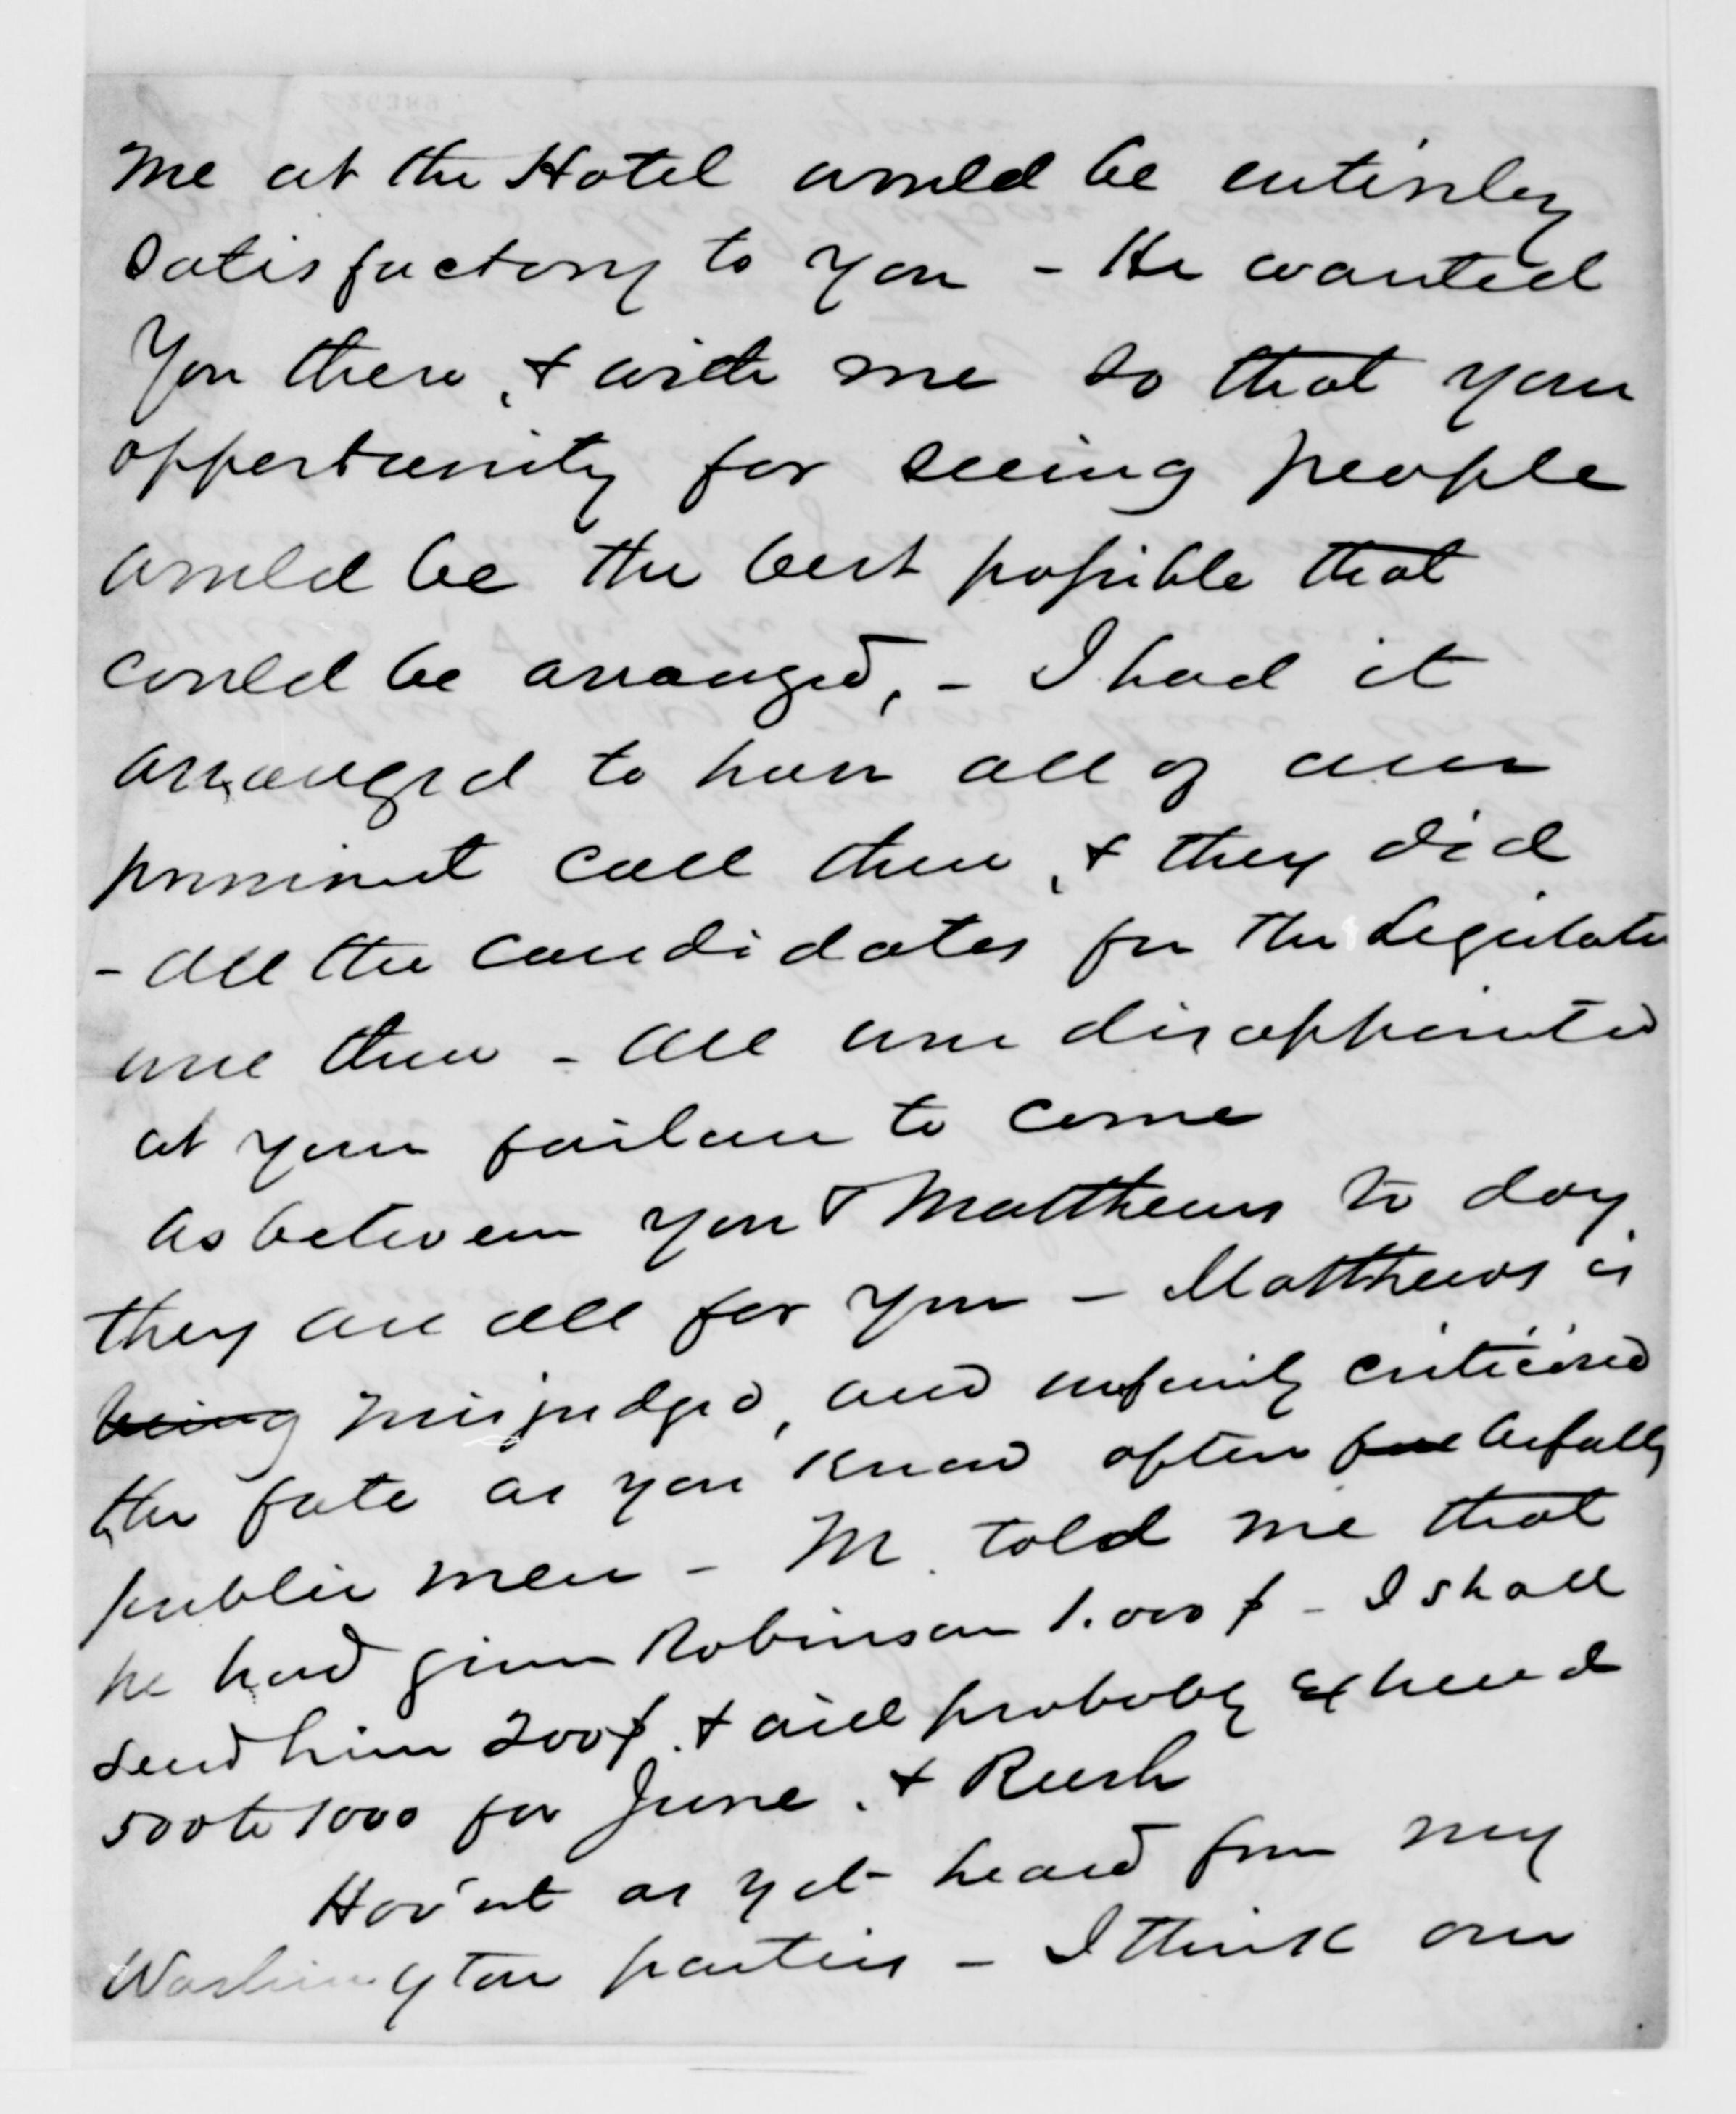 me at the Hotel would be entirely
satisfactory to you - He wanted
you there, & with me so that your
opportunity for seeing people
would be the best possible that
could be arranged, - I had it
arranged to have all of our
prominent call there, & they did
- all the candidates for the Legislature
were there - All were disappointed
at your failure to come
As between you & Matthews to day
they are all for you - Matthews is
being misjudged, and unfairly criticised
the fate as you know often befalls
public men - M. told me that
he had given Robinson 1.000$ - I shall
send him 200$. & will probably expend
500 to 1000 for June. & Rush
Hav'nt as yet heard from my
Washington parties - I think our